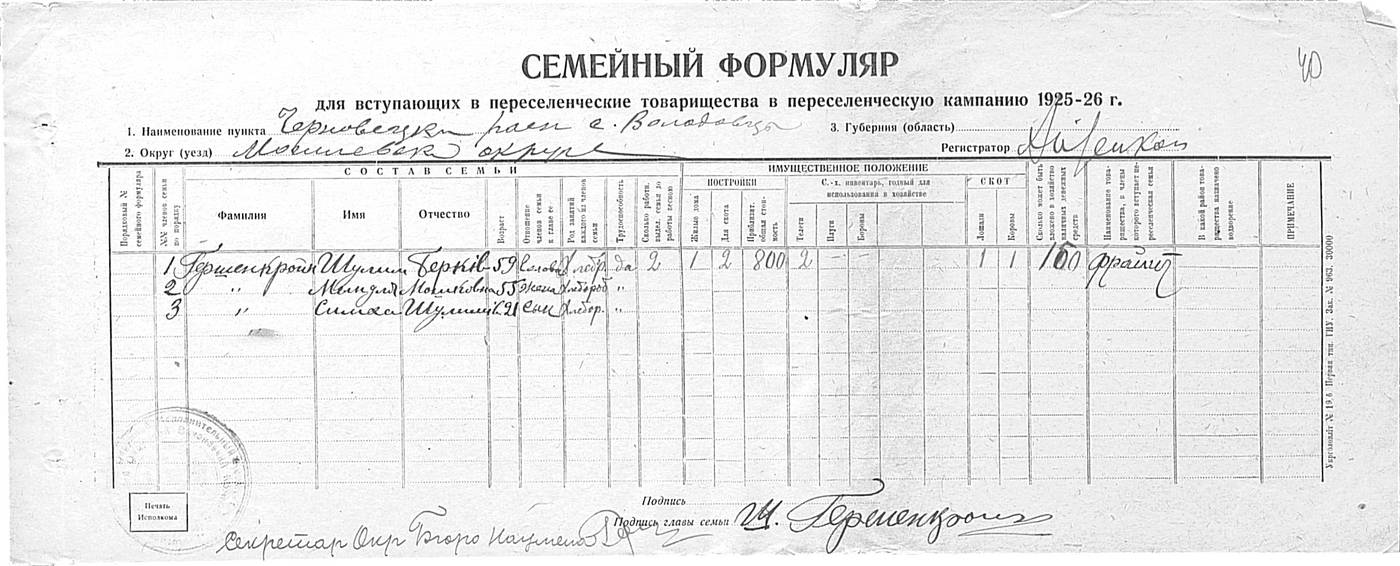 40
СЕМЕЙНЫЙ ФОРМУЛЯР
для вступающих в переселенческие товарищества в переселенческую кампанию 1925-26 г.
1. Наименование пункта Черновецки раен с. Володовцы 3. Губерния (область)
2. Округ (уезд) Могилевска округи Регистратор
СОСТАВ СЕМЬИ ИМУЩЕСТВЕННОЕ ПОЛОЖЕНИЕ
ПОСТРОЙКИ С.-х. инвентарь, годный для использования в хозяйстве СКОТ
Порядковый № семейного формуляра №№ членов семьи по порядку Фамилия Имя Отчество Возраст Отношение членов семьи к главе ее Род занятий каждого из членов семьи Трудоспособность Сколько работн. выдел. семья до работы весною Жилые дома Для скота Приблизит. общая стоимость Телеги Плуги Бороны Лошади Коровы Сколько может быть вложено в хозяйство наличных денежных средств Наименование товарищества, в члены которого вступает переселенческая семья В какой район товарищества назначено водворение ПРИМЕЧАНИЕ
1 Гершенкройн Шулим Берків 59 Голова Хлебр. да 2 1 2 800 2 - - 1 1 100 Фрайгйт
2 " Мошковна 55 Жена Хлебороб "
3 " Симха Шулимів 21 Сын Хлебор. "
Печать Исполкома
Подпись
Подпись главы семьи Ш. Гершенкройн
Секретар Окр Бюро Нацмено
Укрголовліт № 19/6. Первая тип. ГИУ. Зак. № 963. 30000